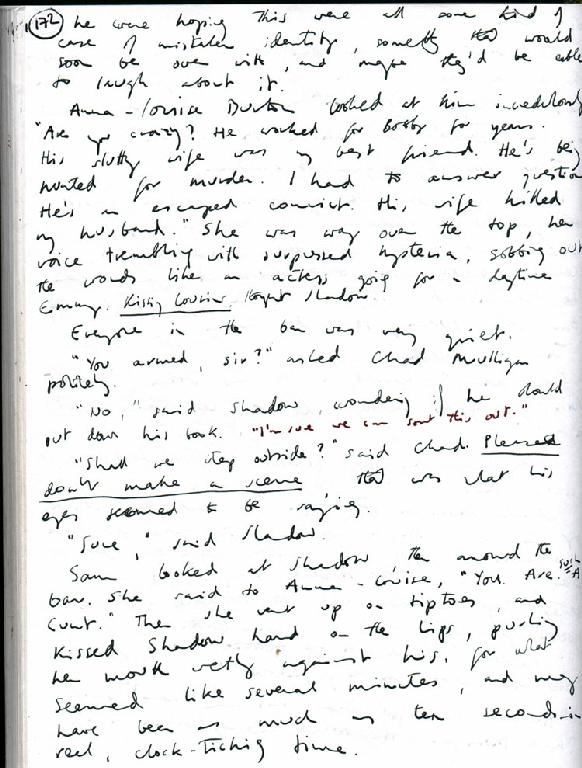 172 he were hoping this were all some kind of
case of mistaken identity, something that would
soon be over with, and maybe they'd be able
to laugh about it.
Anna-Louise Burton looked at him incredulously
"Are you crazy? He worked for Bobby for years.
His slutty wife was my best friend. He's being
hunted for murder. I had to answer questions
He's an escaped convict. His wife killed
my husband." She was way over the top, her
voice trembling with suppressed hysteria, sobbing out
the words like an actress going for a daytime
Emmy. Kissing Cousins, thought Shadow.
Everyone in the bar was very quiet.
"You armed, sir?" asked Chad Mulligan
politely.
"No," said Shadow, wondering if he should
put down his book. "I'm sure we can sort this out."
"Shall we step outside?" said Chad. Please
don't make a scene, that was what his
eyes seemed to be saying.
"Sure," said Shadow.
Sam looked at Shadow, then around the
bar. She said to Anna-Louise, "You. Are. Such A
Cunt." Then she went up on tiptoes, and
kissed Shadow hard on the lips, pushing
her mouth wetly against his, for what
seemed like several minutes, and may
have been as much as ten seconds in
real, clock-ticking time.